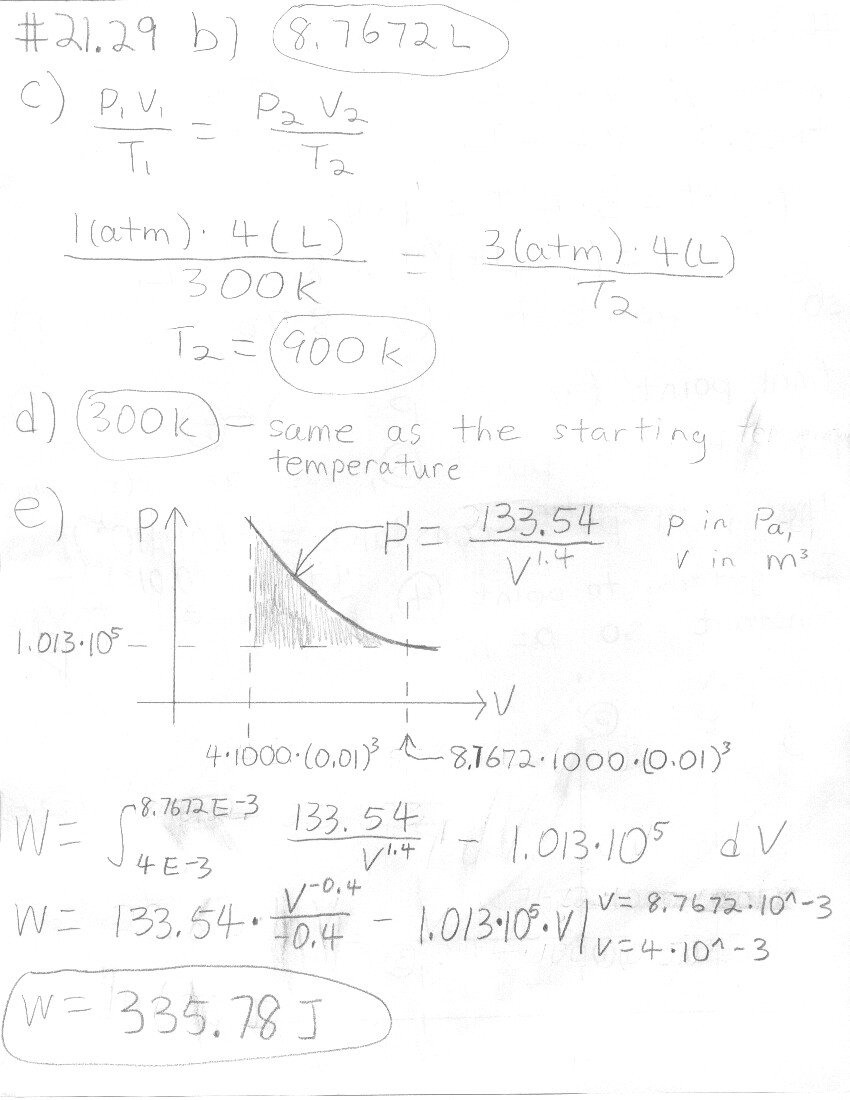 #21.29 b) 8.7672 L
c) P₁V₁/T₁ = P₂V₂/T₂
1(atm)·4(L)/300k = 3(atm)·4(L)/T₂
T₂ = 900k
d) 300k – same as the starting
temperature
e) P P = 133.54/V^1.4 p in Pa,
v in m³
1.013·10⁵
V
4·1000·(0.01)³ 8.7672·1000·(0.01)³
W = ∫_{4E-3}^{8.7672E-3} 133.54/V^1.4 − 1.013·10⁵ dV
W = 133.54 · V^-0.4/-0.4 − 1.013·10⁵·V | V = 8.7672·10^-3
V = 4·10^-3
W = 335.78 J